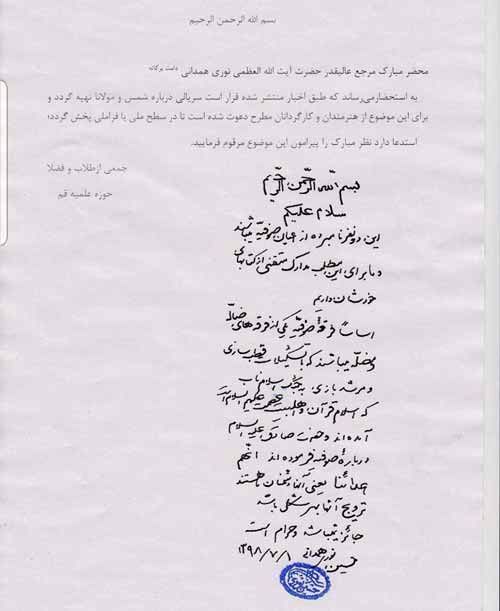 بسم الله الرحمن الرحیم
محضر مبارک مرجع عالیقدر حضرت آیت الله العظمی نوری همدانی دامت برکاته
به استحضارمی‌رساند که طبق اخبار منتشر شده قرار است سریالی درباره شمس و مولانا تهیه گردد و
برای این موضوع از هنرمندان و کارگردانان مطرح دعوت شده است تا در سطح ملی یا فراملی پخش گردد؛
استدعا دارد نظر مبارک را پیرامون این موضوع مرقوم فرمایید.
جمعی ازطلاب و فضلا
حوزه علمیه قم
بسم الله الرحمن الرحیم
سلام علیکم
این دو نفر نامبرده از صوفیه میباشند
و ما برای این مطلب مدارک متقنی از کتابهای
خودشان داریم
اساساً فرقه صوفیه یکی از فرقه های ضاله
و مضله میباشند که با تشکیلات قطب سازی
و مرشد بازی، به جنگ اسلام ناب
که اسلام قرآن و اهلبیت عصمت علیهم السلام است
آمده‌اند و حضرت صادق علیه السلام
درباره صوفیه فرموده‌اند انهم
اعدائنا یعنی آنها دشمنان ما هستند
ترویج آنها بهر شکلی باشد
جائز نمیباشد و حرام است
حسین نوری همدانی ۱۳۹۸/۷/۱